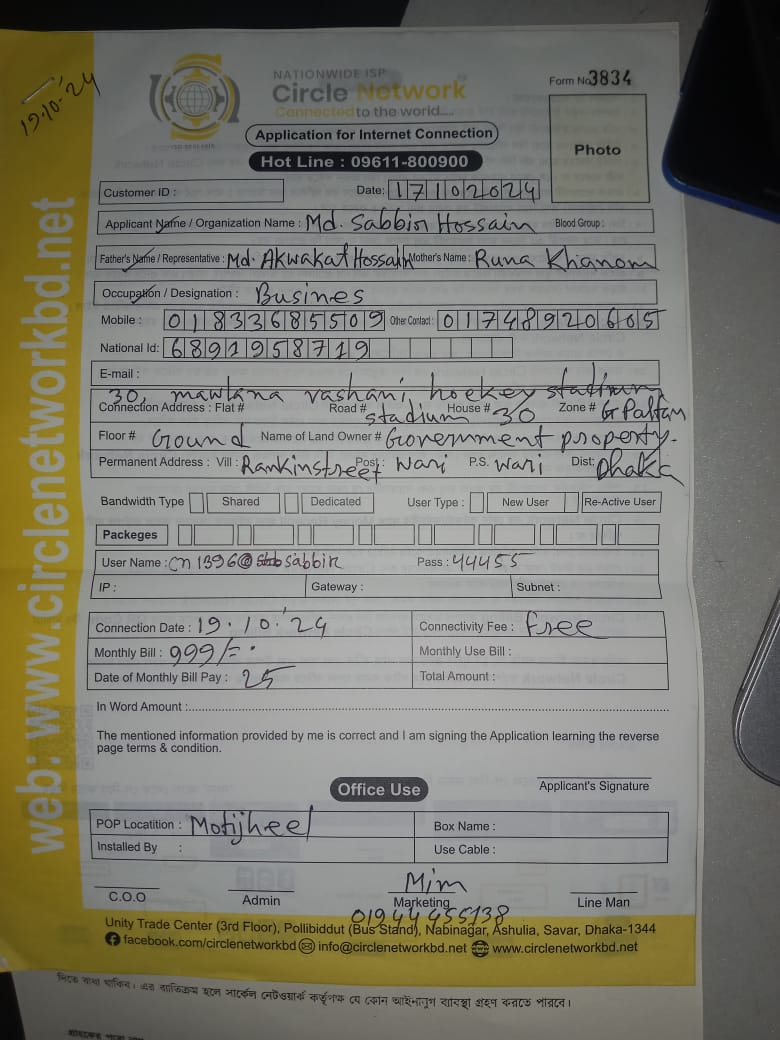 19.10.'24
NATIONWIDE ISP
Circle Network
Connected to the world....
Form No 3834
Application for Internet Connection
Hot Line : 09611-800900
Photo
Customer ID :
Date: 17102024
Applicant Name / Organization Name : Md. Sabbir Hossain Blood Group :
Father's Name / Representative : Md. Akwakat Hossain Mother's Name : Runa Khanom
Occupation / Designation : Busines
Mobile : 01833685509 Other Contact : 01748920605
National Id: 6891958719
E-mail :
30, mawlana vashani hockey stadium
Connection Address : Flat # Road # stadium House # 30 Zone # G Paltan
Floor # Ground Name of Land Owner # Government property.
Permanent Address : Vill : Rankinstreet Post : Wari P.S. Wari Dist: Dhaka
Bandwidth Type Shared Dedicated User Type : New User Re-Active User
Packeges
User Name : cn1396@ sabbir Pass : 44455
IP : Gateway : Subnet :
Connection Date : 19.10.'24 Connectivity Fee : free
Monthly Bill : 999/= . Monthly Use Bill :
Date of Monthly Bill Pay : 25 Total Amount :
In Word Amount :
The mentioned information provided by me is correct and I am signing the Application learning the reverse
page terms & condition.
Applicant's Signature
Office Use
POP Locatition : Motijheel Box Name :
Installed By : Use Cable :
Mim
C.O.O Admin Marketing Line Man
01944455138
Unity Trade Center (3rd Floor), Pollibiddut (Bus Stand), Nabinagar, Ashulia, Savar, Dhaka-1344
facebook.com/circlenetworkbd info@circlenetworkbd.net www.circlenetworkbd.net
web: www.circlenetworkbd.net
দিতে বাধ্য থাকিব। এর ব্যতিক্রম হলে সার্কেল নেটওয়ার্ক কর্তৃপক্ষ যে কোন আইনানুগ ব্যবস্থা গ্রহণ করতে পারবে।